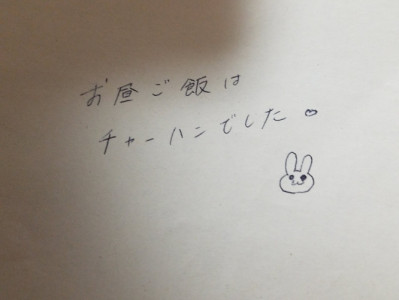 お昼ご飯は
チャーハンでした。